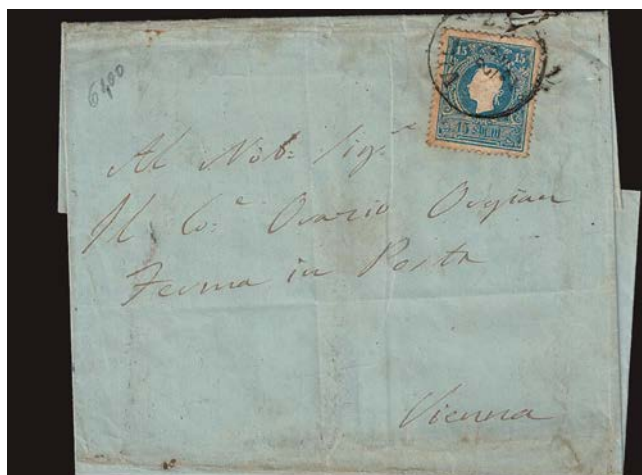 6400
15 15
15 SOLDI
Al Nob: Sigr
Il Co:e Orazio
Ferma in Posta
Vienna